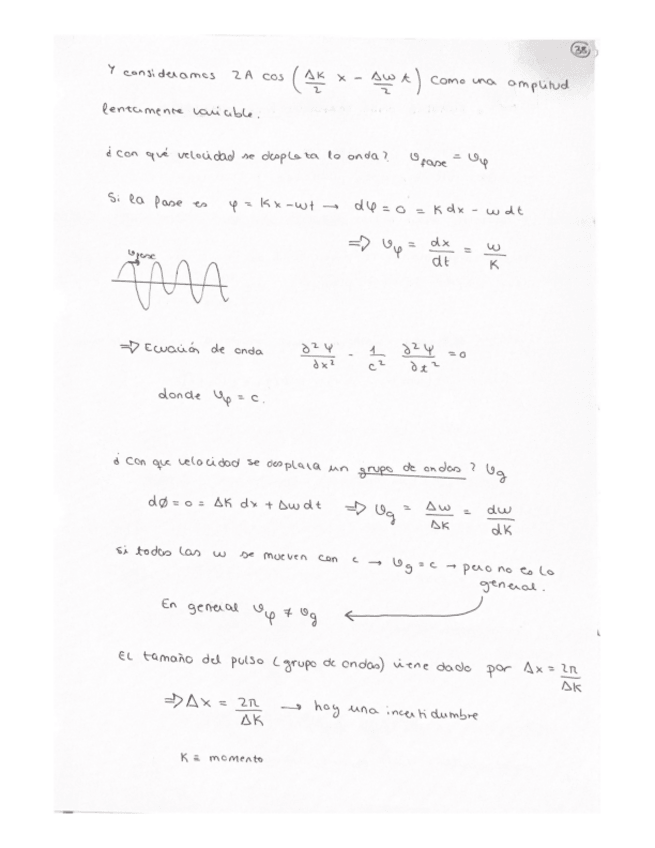 38
Y consideramos 2A cos (Δk/2 x - Δw/2 t) como una amplitud
lentamente variable.
¿Con qué velocidad se desplaza la onda? v_fase = v_φ
Si la fase es φ = kx - wt → dφ = 0 = k dx - w dt
⇒ v_φ = dx/dt = w/k
v_fase
⇒ Ecuación de onda ∂²Ψ/∂x² - 1/c² ∂²Ψ/∂t² = 0
donde v_φ = c.
¿Con que velocidad se desplaza un grupo de ondas? v_g
dø = 0 = Δk dx + Δw dt ⇒ v_g = Δw/Δk = dw/dk
Si todas las w se mueven con c → v_g = c → pero no es lo
general.
En general v_φ ≠ v_g
El tamaño del pulso (grupo de ondas) viene dado por Δx = 2π/Δk
⇒ Δx = 2π/Δk → hay una incertidumbre
k ≡ momento